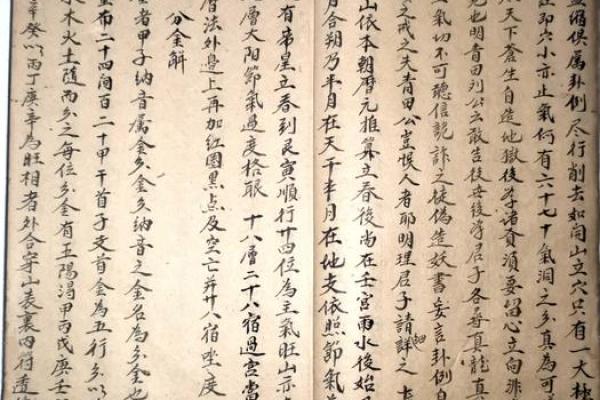 縮俱屬卦例尽行削去如開山立穴只有一太極
在即穴小亦止氣何有六十七十氣洞之分真為可
天下蒼生自造地獄後學諸賢須要留心立向非
也明青田刘公云敢告後世後學君子各尋真龍真
氣切不可聽信詭詐之徒偽造妖書妄言卦例自
之戒之夫青田公豈悞人者耶明理君子請詳細之 十
山依本朝曆元推算立春後尚在壬宮雨水後始
月合朔乃半月在天干半月在地支依照節氣
有帝星立春到艮寅順行廿四位為主氣旺山示
層太陽節氣過度格眼 十八層二十八宿過宮當
層法外邊上再加紅圈黑点及空亡并廿八宿坐度
分金解
者甲子納音屬金分金分納音之金名為分金也
布二十四向百二十甲干首子支首金為五行分以
水木火土随而分之每位分金有五陽渴甲丙戊庚壬
辛癸以丙丁庚辛為旺相者外合穿山表裏内符透